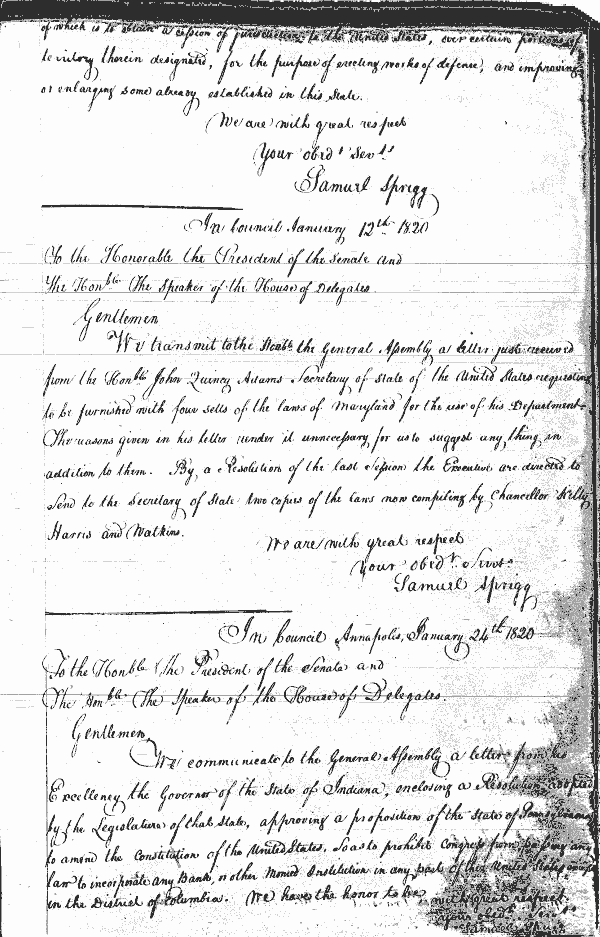 of which is to obtain a cession of jurisdiction to the United States, over certain portions of
territory therein designated, for the purpose of erecting works of defense, and improving
or enlarging some already established in this State.
We are with great respect
Your obedt Servts
Samuel Sprigg
In Council January 12th 1820
To the Honorable the President of the Senate and
The Honble The Speaker of the House of Delegates
Gentlemen
We transmit to the Honble the General Assembly a letter just received
from the Honble John Quincy Adams Secretary of State of the United States requesting
to be furnished with four setts of the laws of Maryland for the use of his Department.
The reasons given in his letter render it unnecessary for us to suggest any thing in
addition to them. By a Resolution of the last Session the Executive are directed to
Send to the Secretary of State two copies of the laws now compiling by Chancellor Kilty
Harris and Watkins.
We are with great respect
Your obedt Servts
Samuel Sprigg
In Council Annapolis, January 24th 1820
To the Honble the President of the Senate and
The Honble The Speaker of the House of Delegates.
Gentlemen,
We communicate to the General Assembly a letter from his
Excellency the Governor of the State of Indiana, enclosing a Resolution adopted
by the Legislature of that State, approving a proposition of the State of Pennsylvania
to amend the Constitution of the United States, so as to prohibit Congress from passing any
law to incorporate any Bank, or other Monied Institution in any part of the United States except
in the District of Columbia. We have the honor to be, with great respect
Your obedt Servts
Samuel Sprigg